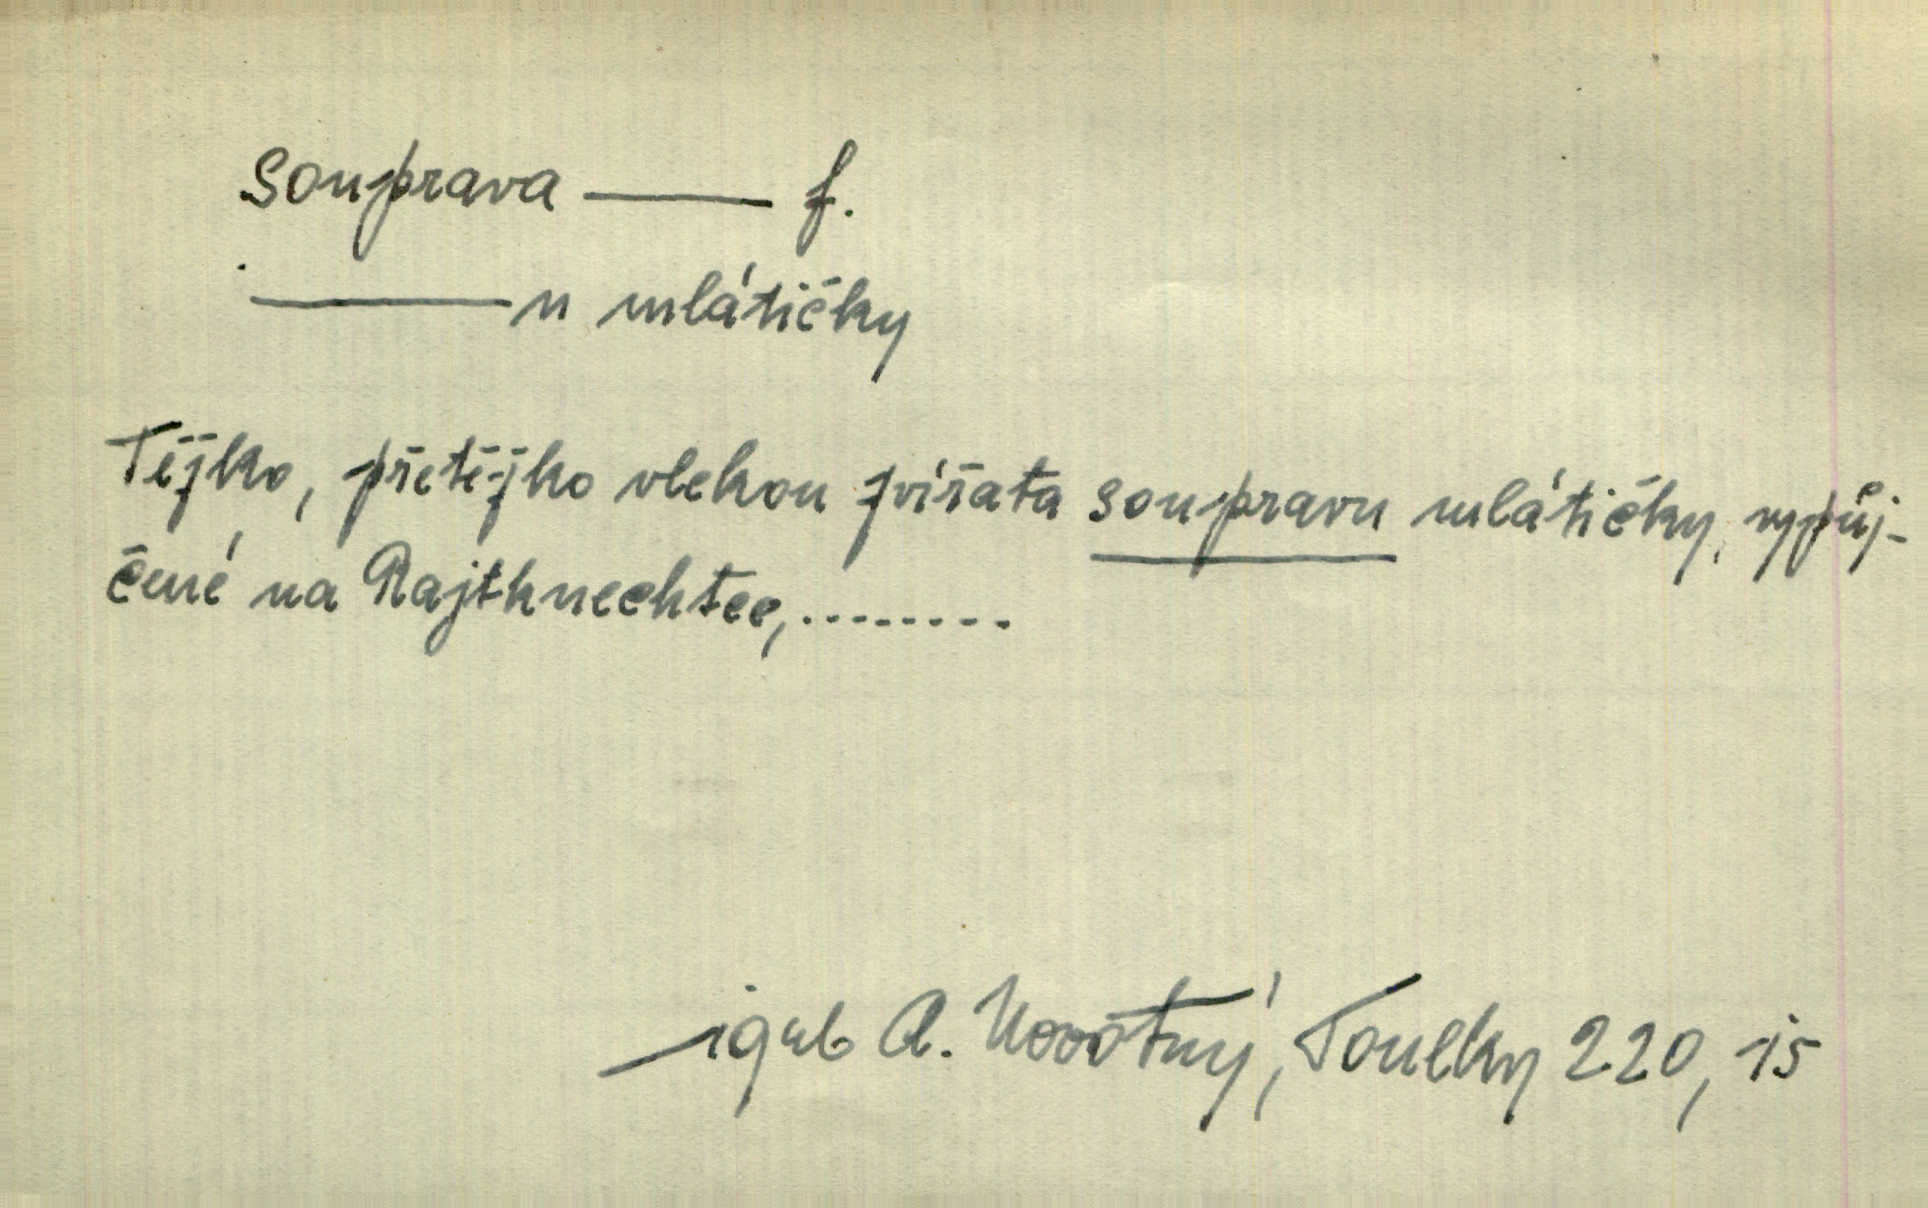 souprava ——— f.
——— u mlátičky
Těžko, přetěžko vlekou zvířata soupravu mlátičky, vypůj-
čené na Rajtknechtce, ........
A. Novotný, Toulky 220, is